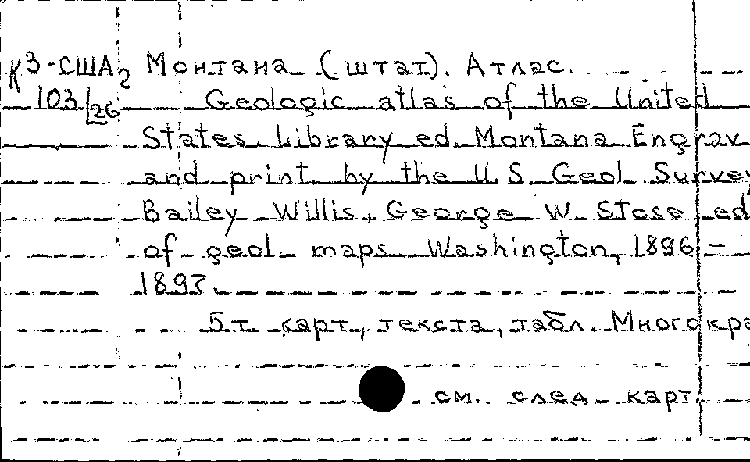 К3-США2 Монтана (штат). Атлас.
103/26 Geologic atlas of the United
States. Library ed. Montana Engrav
and print by the U.S. Geol. Survey
Bailey Willis, George W. Stose ed
of geol. maps. Washington, 1896-
1897.
5 т. карт, текста, табл. Многокра
см. след карт.